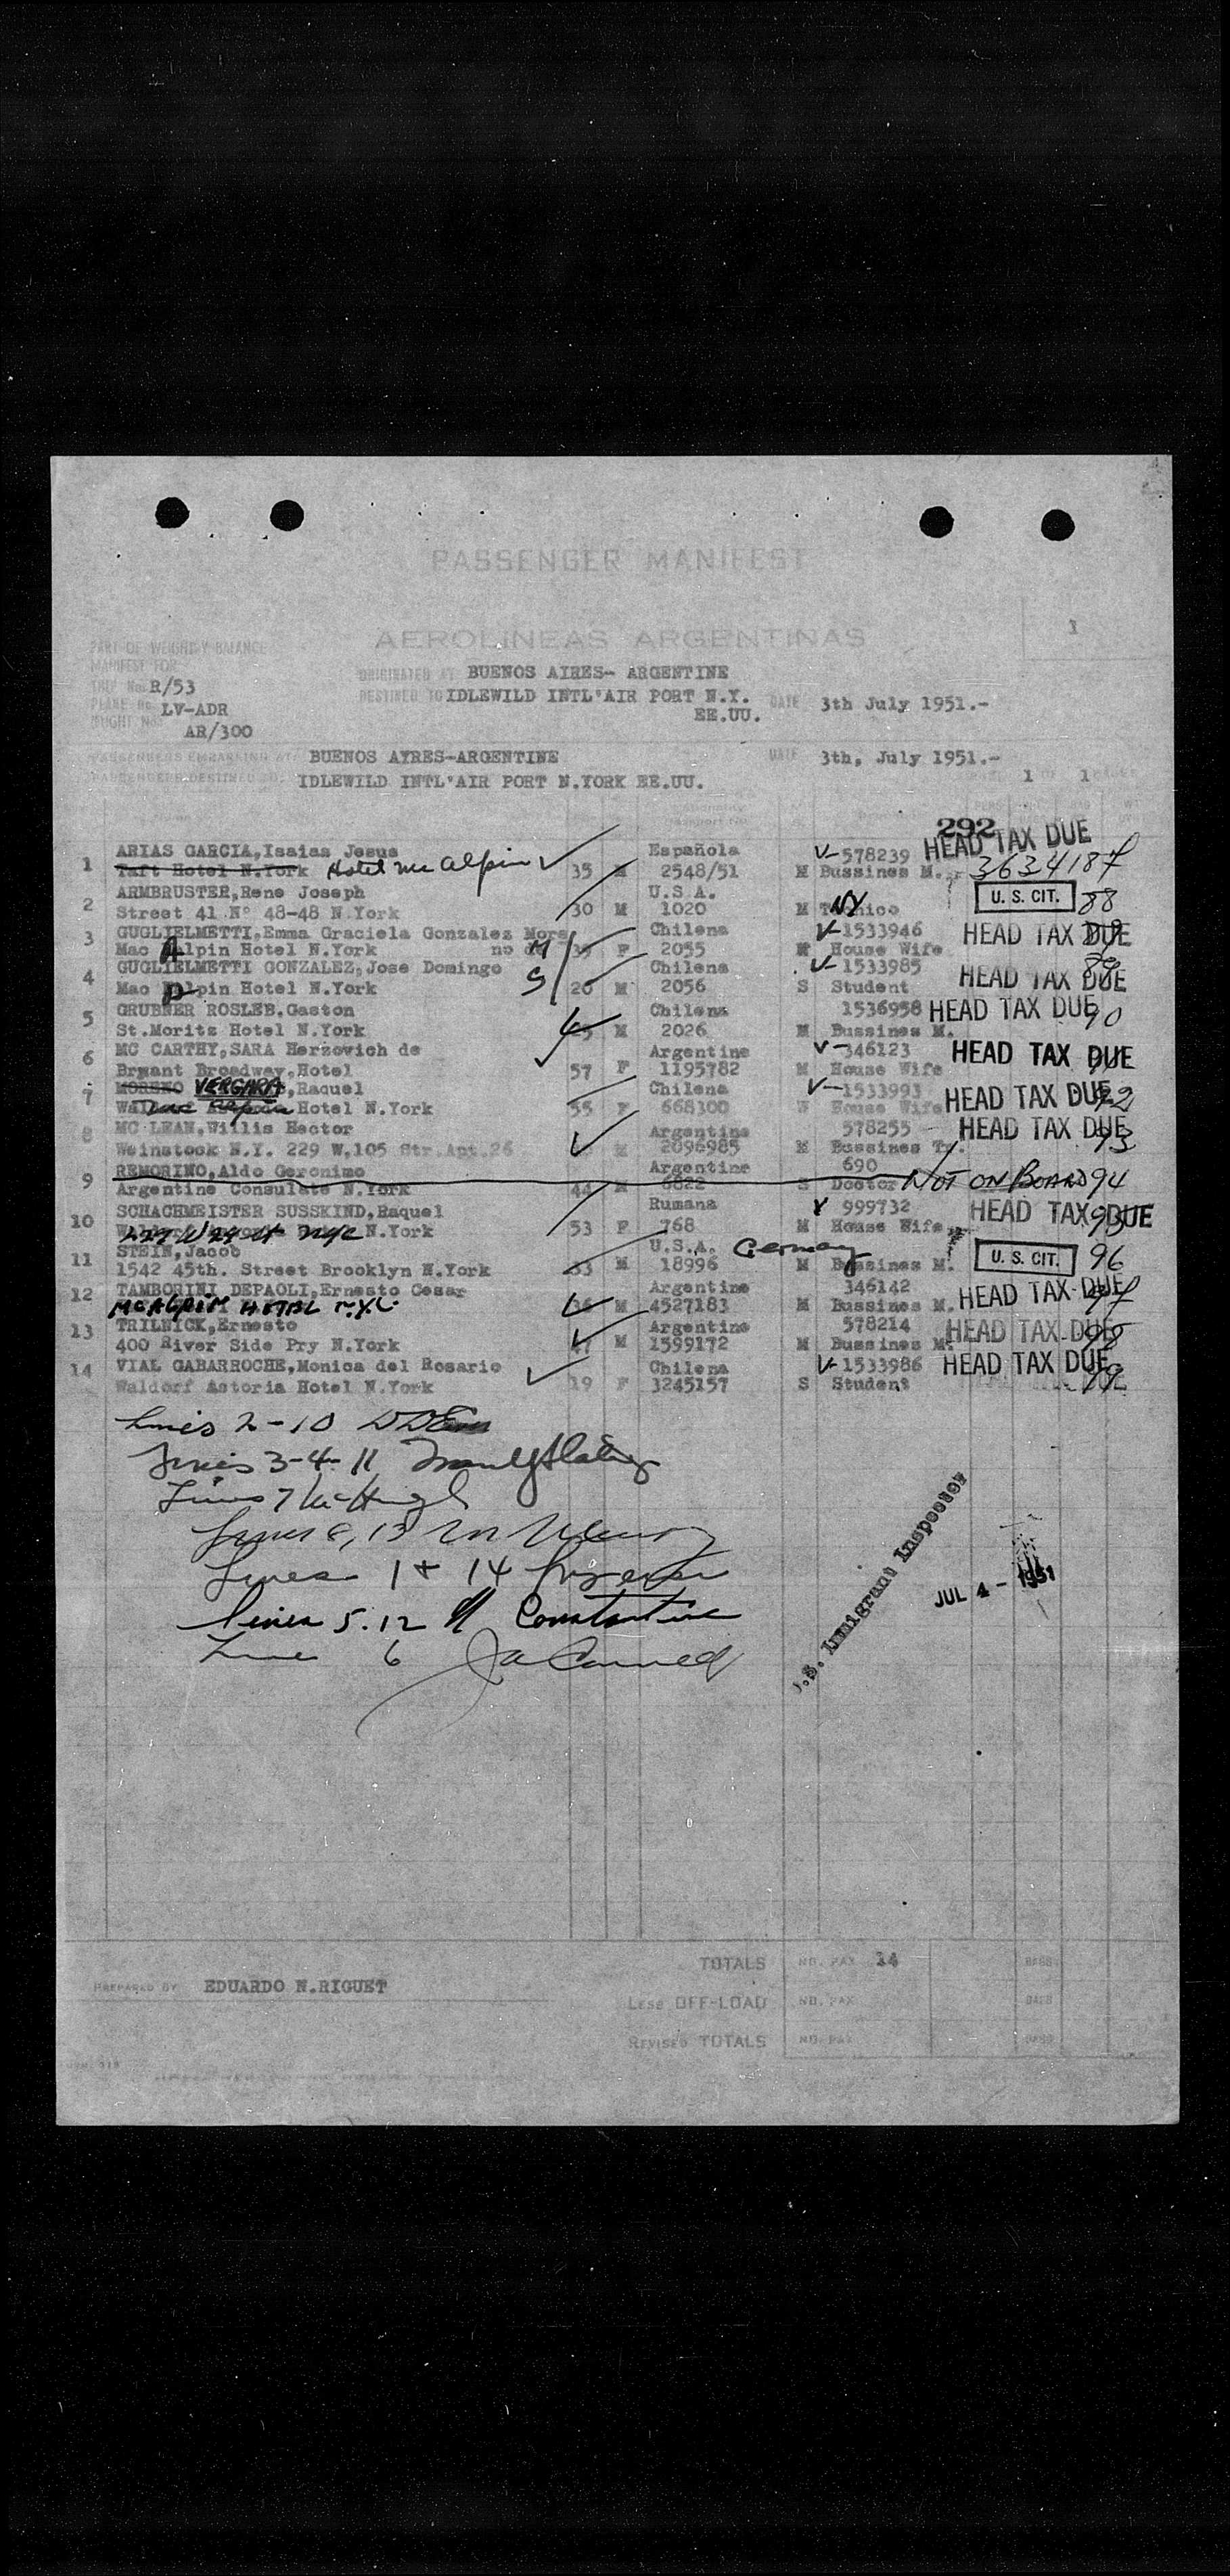 PASSENGER MANIFEST
AEROLINEAS ARGENTINAS
1
PART OF WEIGHT & BALANCE
MANIFEST FOR
TRIP No. R/53
PLANE No. LV-ADR
FLIGHT No. AR/300
ORIGINATED AT BUENOS AIRES- ARGENTINE
DESTINED TO IDLEWILD INTL'AIR PORT N.Y. DATE 3th July 1951.-
EE.UU.
PASSENGERS EMBARKING AT BUENOS AYRES-ARGENTINE DATE 3th, July 1951.-
PASSENGERS DESTINED TO IDLEWILD INTL'AIR PORT N.YORK EE.UU. 1 OF 1
292
ARIAS GARCIA,Isaias Jesus Española V-578239 HEAD TAX DUE
1 Taft Hotel N.York Hotel Mc Alpin 35 M 2548/51 M Bussines M. 3634187
ARMBRUSTER,Rene Joseph U.S.A. U. S. CIT. 88
2 Street 41 Nº 48-48 N.York 30 M 1020 M NY
3 GUGLIELMETTI,Emma Graciela Gonzalez More Chilena V-1533946 HEAD TAX DUE
Mac Alpin Hotel N.York no de M 35 F 2055 M House Wife
4 GUGLIELMETTI GONZALEZ,Jose Domingo S Chilena V-1533985 HEAD TAX DUE
Mac Alpin Hotel N.York 20 M 2056 S Student
5 GRUBNER ROSLEB,Gaston Chilena 1536958 HEAD TAX DUE 90
St.Moritz Hotel N.York M 2026 M Bussines M.
6 MC CARTHY,SARA Herzovich de Argentine V-346123 HEAD TAX DUE
Bryant Broadway,Hotel 57 F 1195782 M House Wife
7 MORENO VERGARA,Raquel Chilena V-1533993 HEAD TAX DUE 92
Hotel N.York 55 F 668300 W House Wife
8 MC LEAN,Willis Hector Argentine 578255 HEAD TAX DUE 93
Weinstock N.Y. 229 W.105 Str.Apt.26 M 2096985 M Bussines
REMORINO,Aldo Geronimo Argentine 690
9 Argentine Consulate N.York 44 M 6822 S Doctor NOT ON BOARD 94
SCHACHMEISTER SUSSKIND,Raquel Rumana 999732 HEAD TAX DUE 95
10 N.York 53 F 768 M House Wife
STEIN,Jacob U.S.A. Germany U. S. CIT. 96
11 1542 45th. Street Brooklyn N.York 33 M 18996 M Bussines M.
12 TAMBORINI DEPAOLI,Ernesto Cesar Argentine 346142 HEAD TAX DUE 97
MCALPIN HOTEL N.Y.C. 36 M 4527183 M Bussines M.
13 TRILNICK,Ernesto Argentine 578214 HEAD TAX DUE 98
400 River Side Pry N.York 47 M 1599172 M Bussines M.
14 VIAL GABARROCHE,Monica del Rosario Chilena V-1533986 HEAD TAX DUE
Waldorf Astoria Hotel N.York 19 F 3245157 S Student 99
Lines 2-10
Lines 3-4-11
Lines 7
Lines 8, 13
Lines 1 + 14
Lines 5. 12 Constantine
Line 6
U.S. Immigrant Inspector
JUL 4 - 1951
TOTALS NO. PAX 14 BAGS
PREPARED BY EDUARDO N.RIGUET
LESS OFF-LOAD NO. PAX BAGS
REVISED TOTALS NO. PAX BAGS